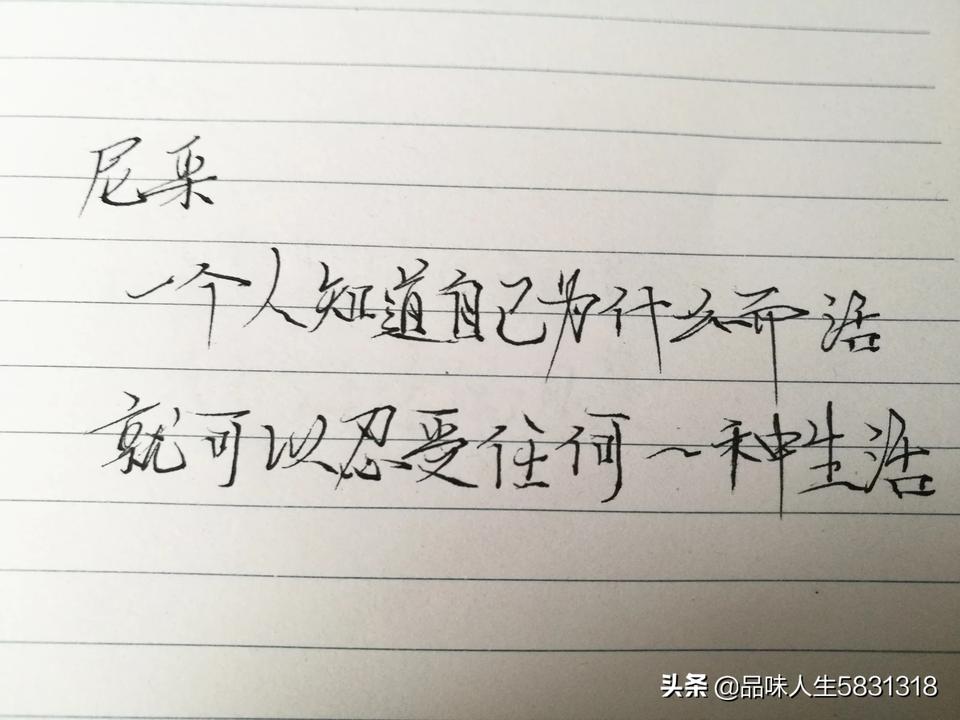 尼采
一个人知道自己为什么而活
就可以忍受任何一种生活
头条 @品味人生5831318